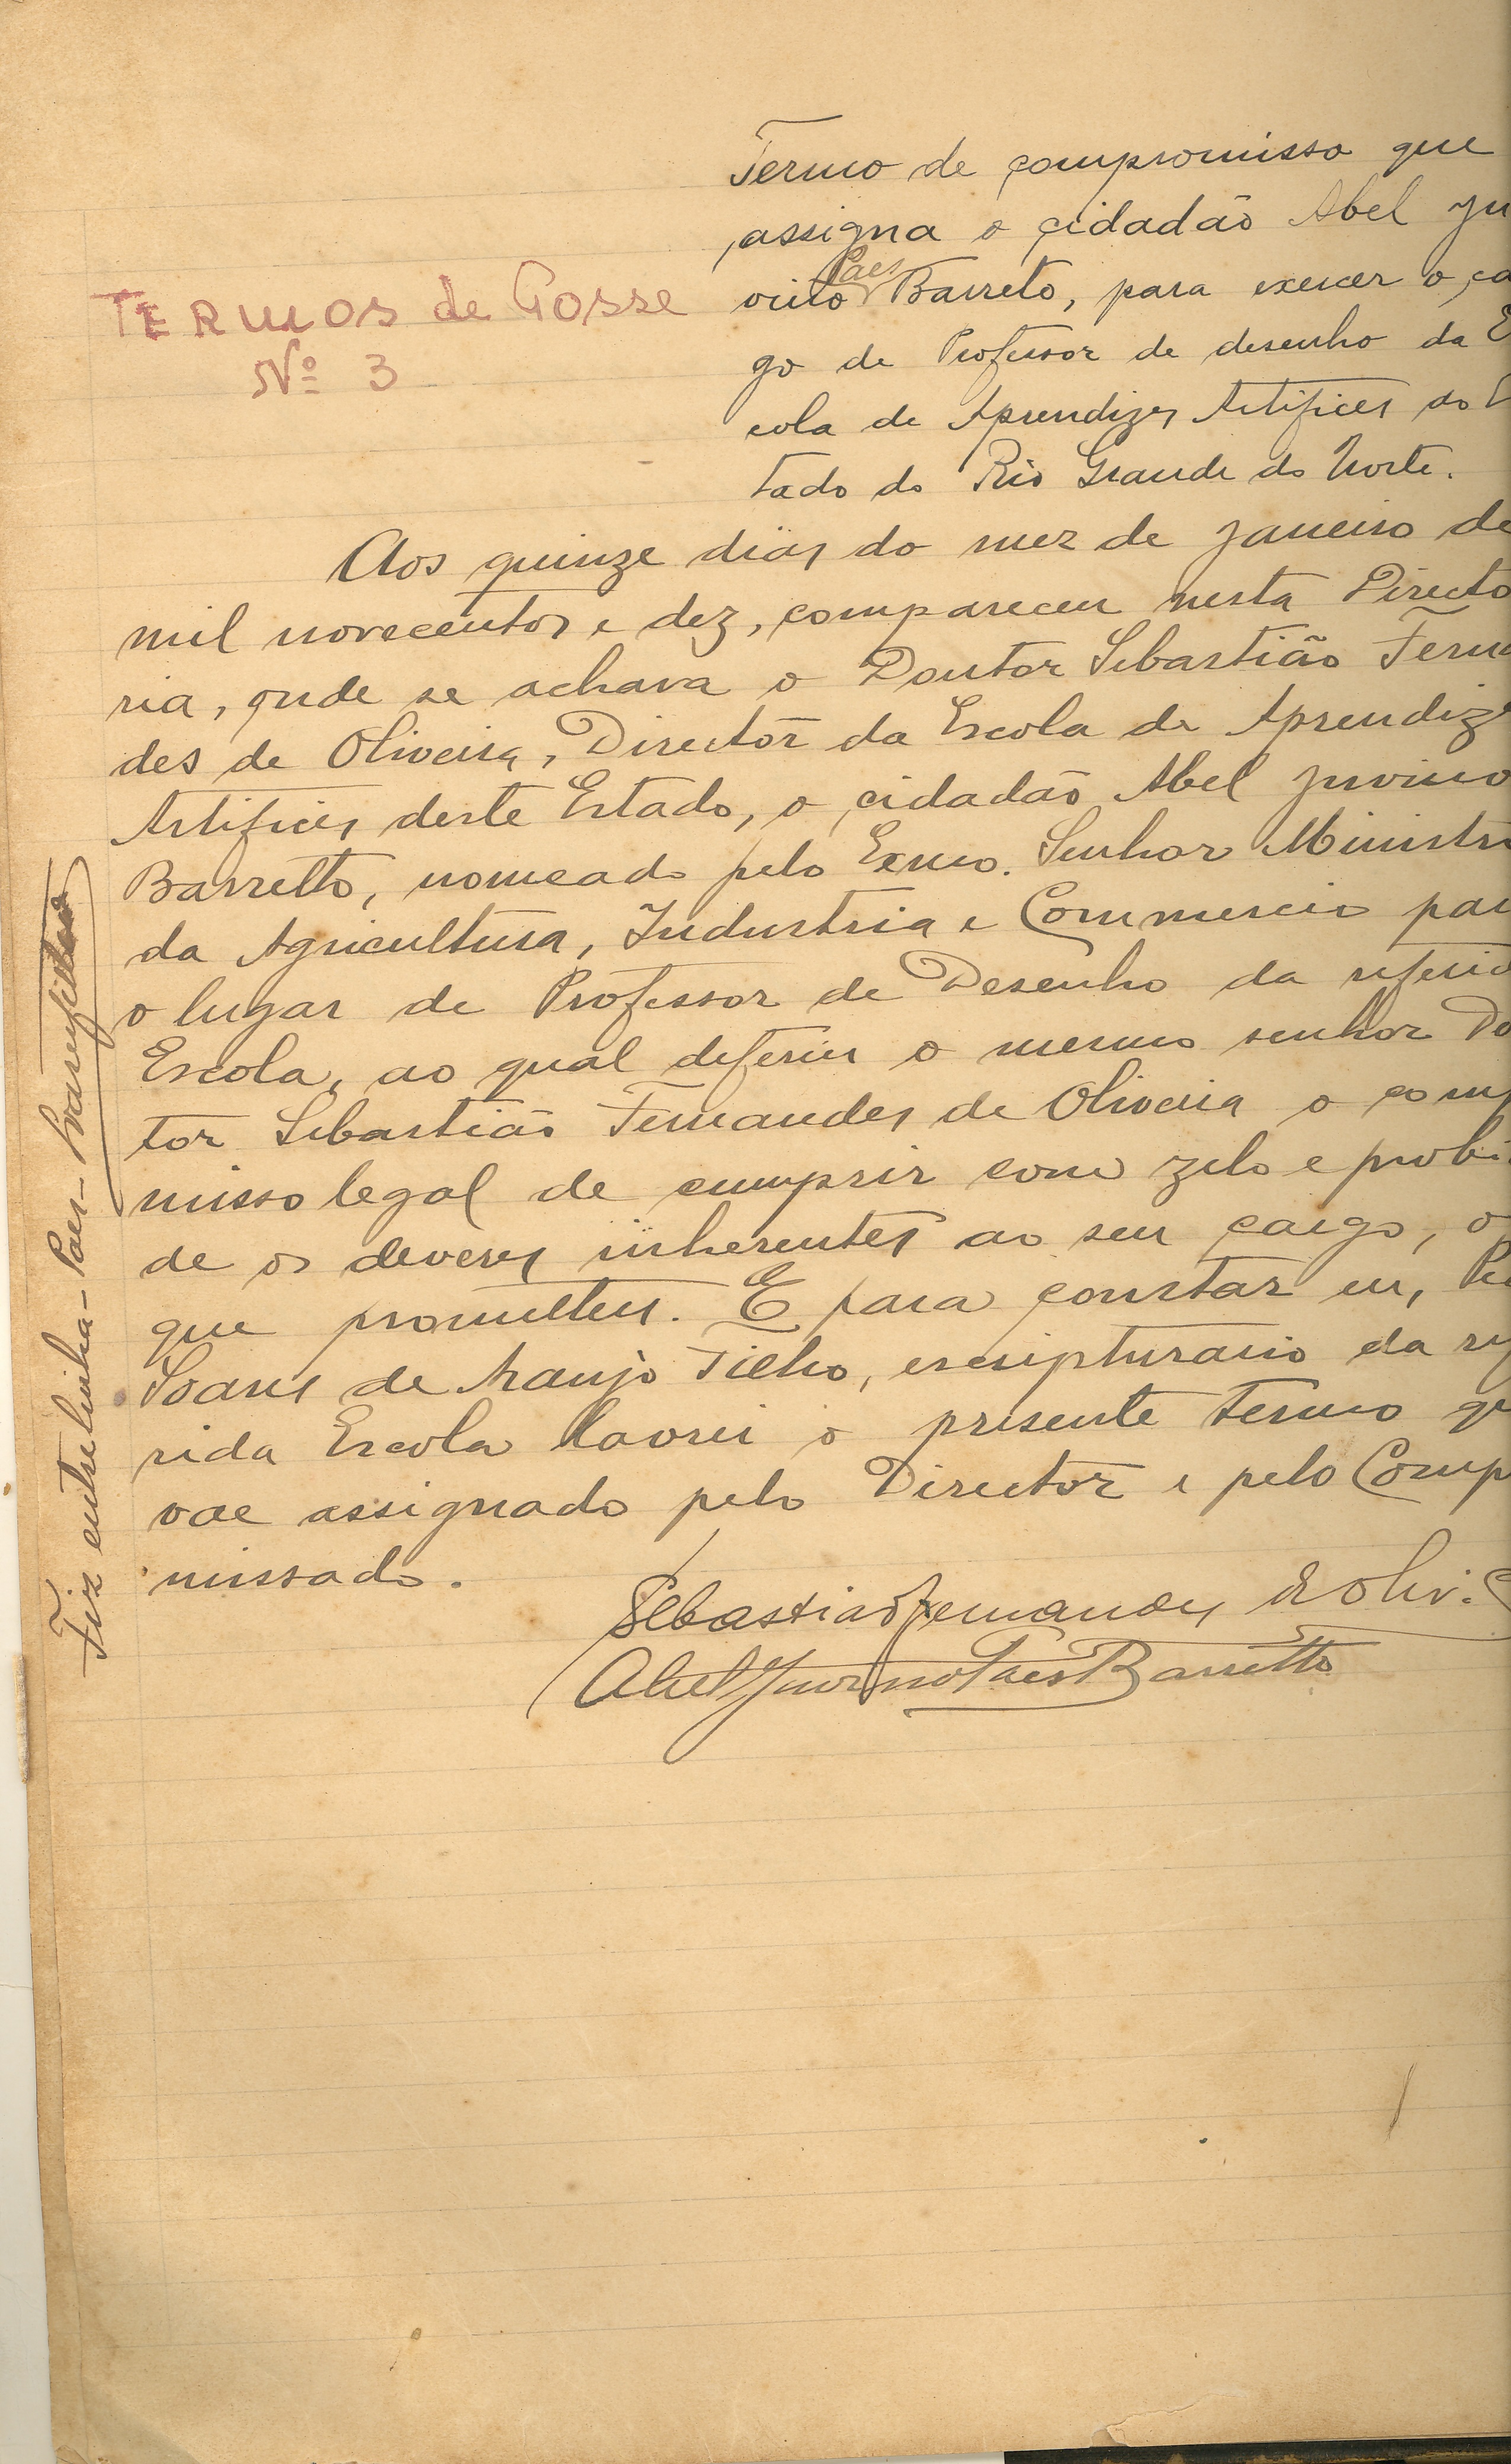 Termo de compromisso que
assigna o cidadão Abel Ju
Paes
vino Barreto, para exercer o ca
TERMOS de Posse
Nº 3
go de Professor de desenho da E
cola de Aprendizes Artifices do E
tado do Rio Grande do Norte.
Aos quinze dias do mez de Janeiro de
mil novecentos e dez, compareceu nesta Directo
ria, onde se achava o Doutor Sebastião Ferna
des de Oliveira, Director da Escola de Aprendize
Artifices deste Estado, o cidadão Abel Juvino
Barretto, nomeado pelo Exmo. Senhor Ministr
da Agricultura, Industria e Commercio par
o lugar de Professor de Desenho da referid
Escola, ao qual deferiu o mesmo senhor Do
tor Sebastião Fernandes de Oliveira o comp
misso legal de cumprir com zelo e probi
de os deveres inherentes ao seu cargo, o
que prometteu. E para constar eu,
Soares de Araujo Filho, escripturario da ref
rida Escola lavrei o presente termo qu
vae assignado pelo Director e pelo Comp
missado.
Sebastião Fernandes de Oliv.
Abel Juvino Paes Barretto
Fiz entrelinha - Paes -